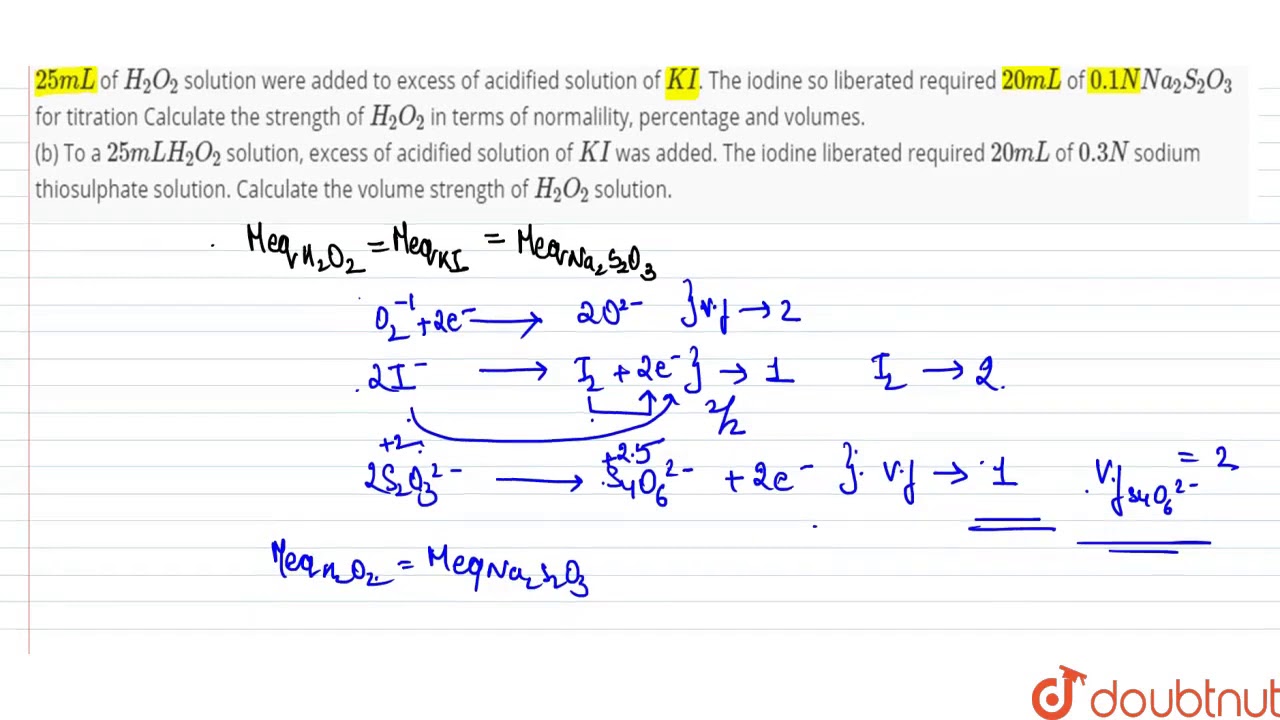 25mL of H₂O₂ solution were added to excess of acidified solution of KI. The iodine so liberated required 20mL of 0.1N Na₂S₂O₃
for titration Calculate the strength of H₂O₂ in terms of normalility, percentage and volumes.
(b) To a 25mLH₂O₂ solution, excess of acidified solution of KI was added. The iodine liberated required 20mL of 0.3N sodium
thiosulphate solution. Calculate the volume strength of H₂O₂ solution.
Meq H₂O₂ = Meq KI = Meq Na₂S₂O₃
O₂⁻¹ + 2e⁻ → 2O²⁻ } v.f → 2
2I⁻ → I₂ + 2e⁻ } → 1 I₂ → 2.
2/2
+2 +2.5
2S₂O₃²⁻ → S₄O₆²⁻ + 2e⁻ } V.f → 1 V.f S₄O₆²⁻ = 2
Meq H₂O₂ = Meq Na₂S₂O₃
doubtnut